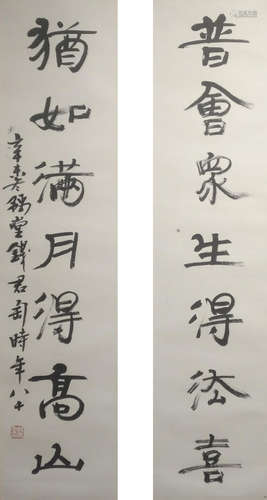 普會眾生得法喜
猶如滿月得高山
辛未冬豫堂錢君匋時年八十